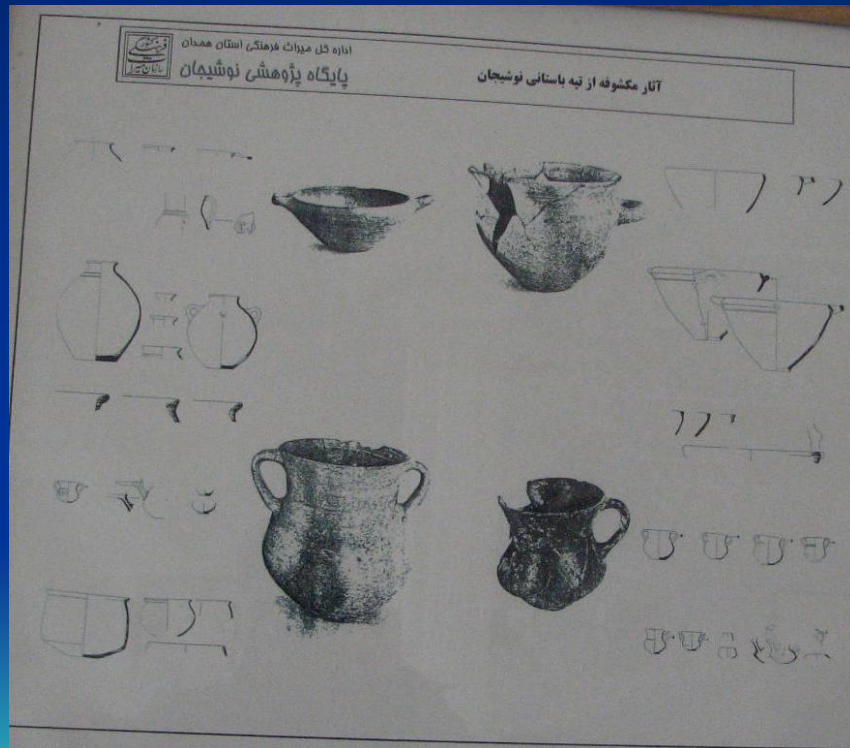 اداره کل میراث فرهنگی استان همدان
پایگاه پژوهشی نوشیجان
آثار مکشوفه از تپه باستانی نوشیجان